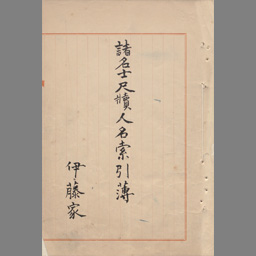 諸名士尺牘人名索引薄
伊藤家